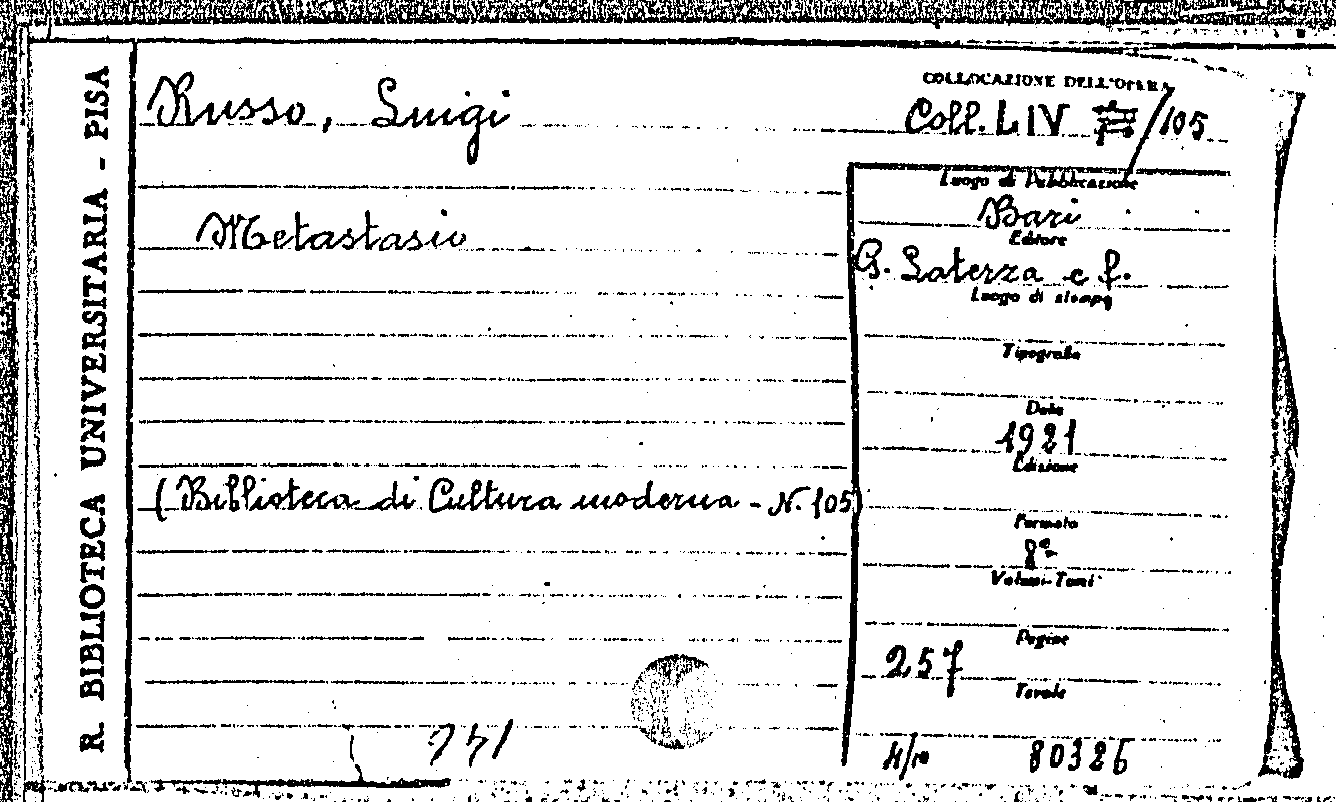 R. BIBLIOTECA UNIVERSITARIA - PISA
Russo, Luigi
COLLOCAZIONE DELL'OPERA
Coll. LIV /105
Metastasio
Luogo di Pubblicazione
Bari
Editore
G. Laterza e f.
Luogo di stampa
Tipografia
Data
1921
Edizione
(Biblioteca di Cultura moderna - N. 105)
Formato
8º
Volumi-Tomi
Pagine
257
Tavole
80326